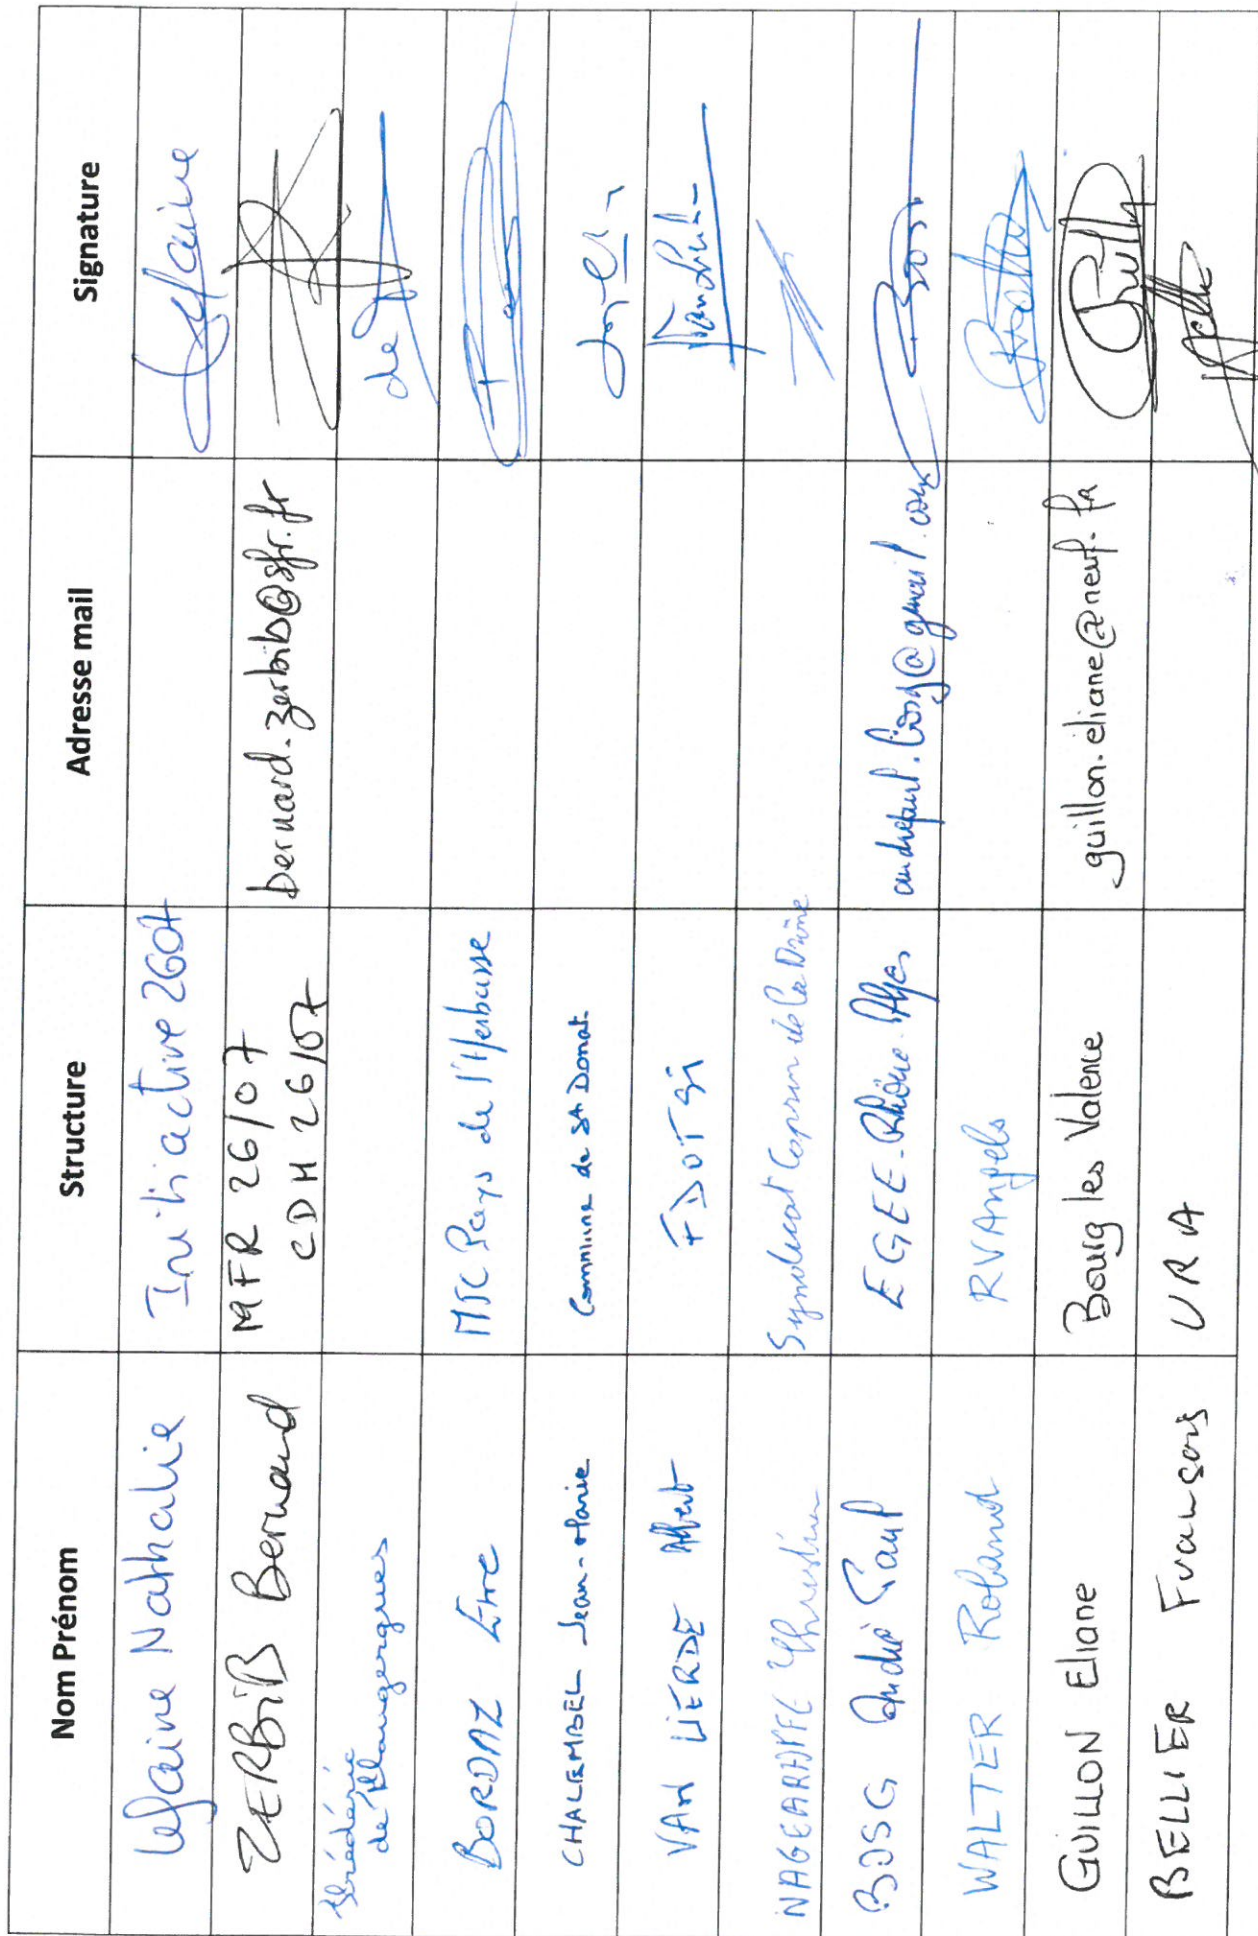 Nom Prénom Structure Adresse mail Signature
Lefaine Nathalie Initiactive 2607 Lefaine
ZERBiB Bernard MFR 26/07 bernard.zerbib@sfr.fr
CDH 26/07
Frédéric
de Flaugergues de
BORDAZ MJC Pays de l'Herbasse
CHALEMBEL Jean-Marie Commune de St Donat
VAN LiERDE Albert FDOTSi
Syndicat de la Drôme
BOSG André Paul EGEE-Rhône-Alpes
WALTER Roland RVAngels
GUILLON Eliane Bourg les Valence guillon.eliane@neuf.fr
BELLIER François URA